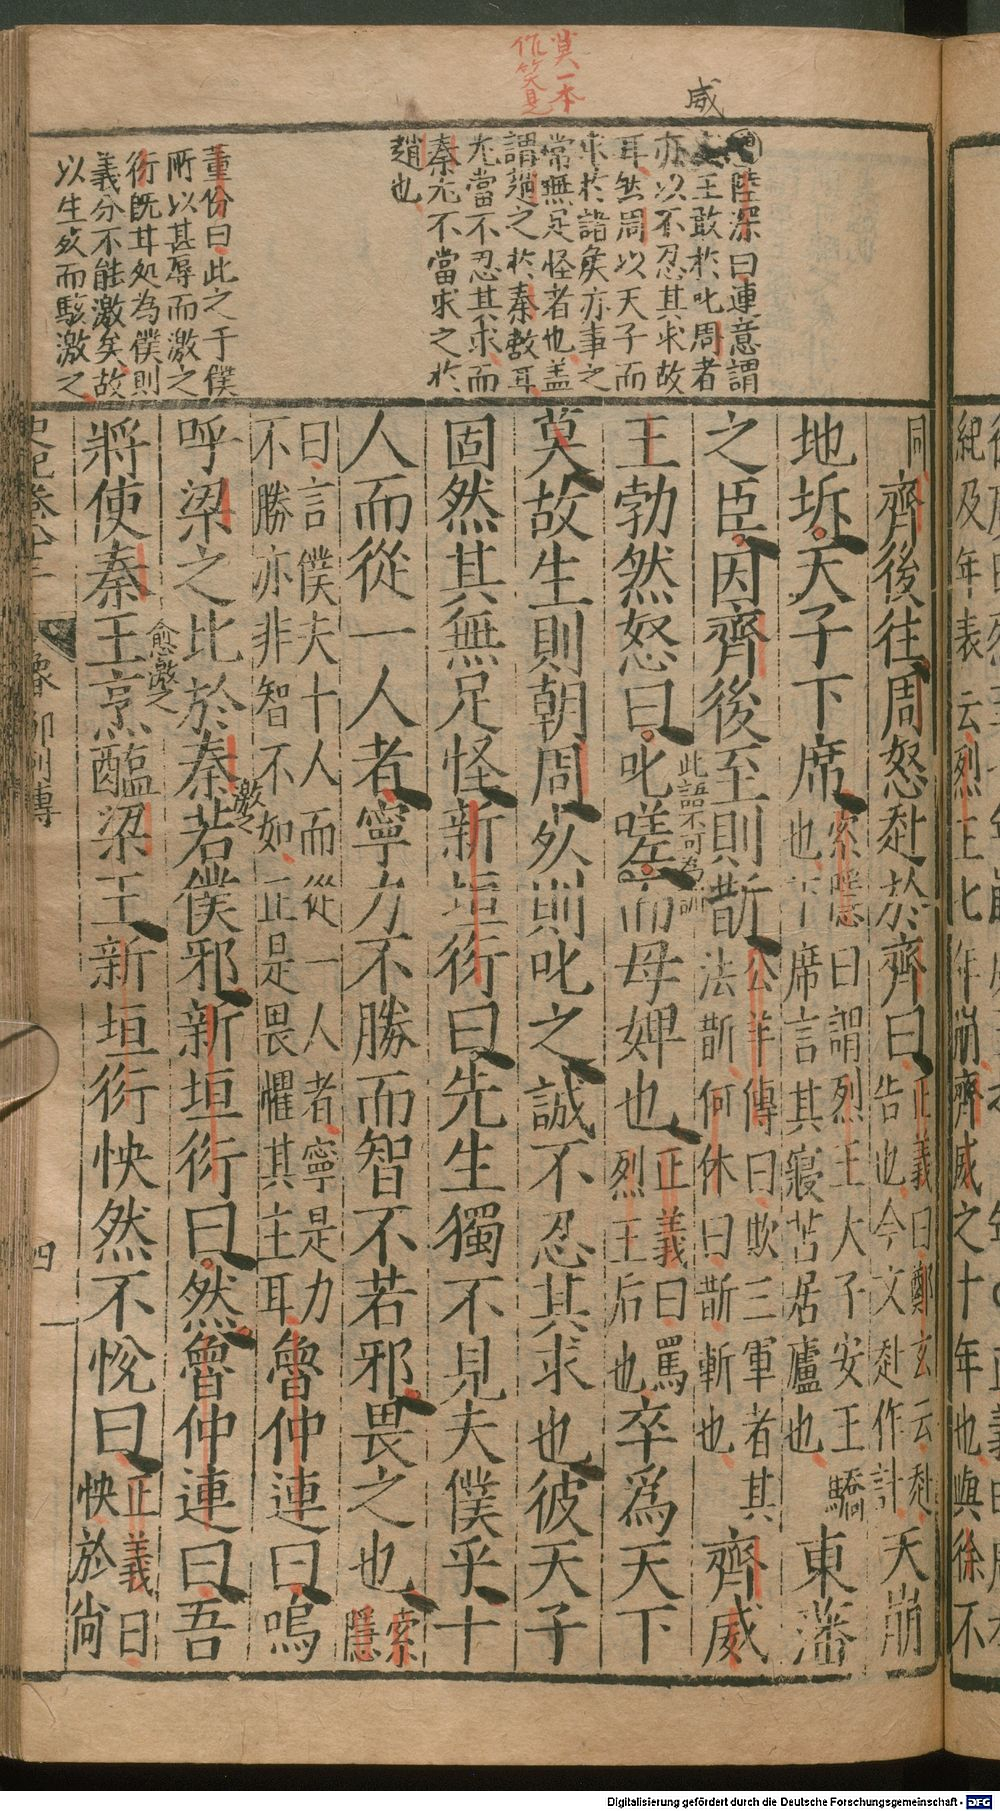 紀及年表云烈王七年崩齊威之十年也與徐不
莫一本
威
陸深曰連意謂
王敢於叱周者
亦以不忍其求故
耳然周以天子而
求於諸矦亦事之
常無足怪者也蓋
謂趙之於秦敵耳
尤當不忍其求而
秦尤不當求之於
趙也
董份曰此之于僕
所以甚辱而激之
衍既甘処為僕則
義分不能激矣故
以生死而駭激之
同齊後往周怒赴於齊曰正義曰鄭玄云赴告也今文赴作訃天崩
地坼天子下席索隱曰謂烈王大子安王驕也下席言其寢苫居廬也東藩
之臣因齊後至則斮公羊傳曰欺三軍者其法斮何休曰斮斬也齊威
此語不可為訓
王勃然怒曰叱嗟而母婢也正義曰罵烈王后也卒爲天下
莫故生則朝周死則叱之誠不忍其求也彼天子
固然其無足怪新垣衍曰先生獨不見夫僕乎十
人而從一人者寧力不勝而智不若邪畏之也索隱
曰言僕夫十人而從一人者寧是力
不勝亦非智不如正是畏懼其主耳魯仲連曰嗚
激之
呼梁之比於秦若僕邪新垣衍曰然魯仲連曰吾
愈激之
將使秦王烹醢梁王新垣衍怏然不悅曰正義曰怏於尚
四